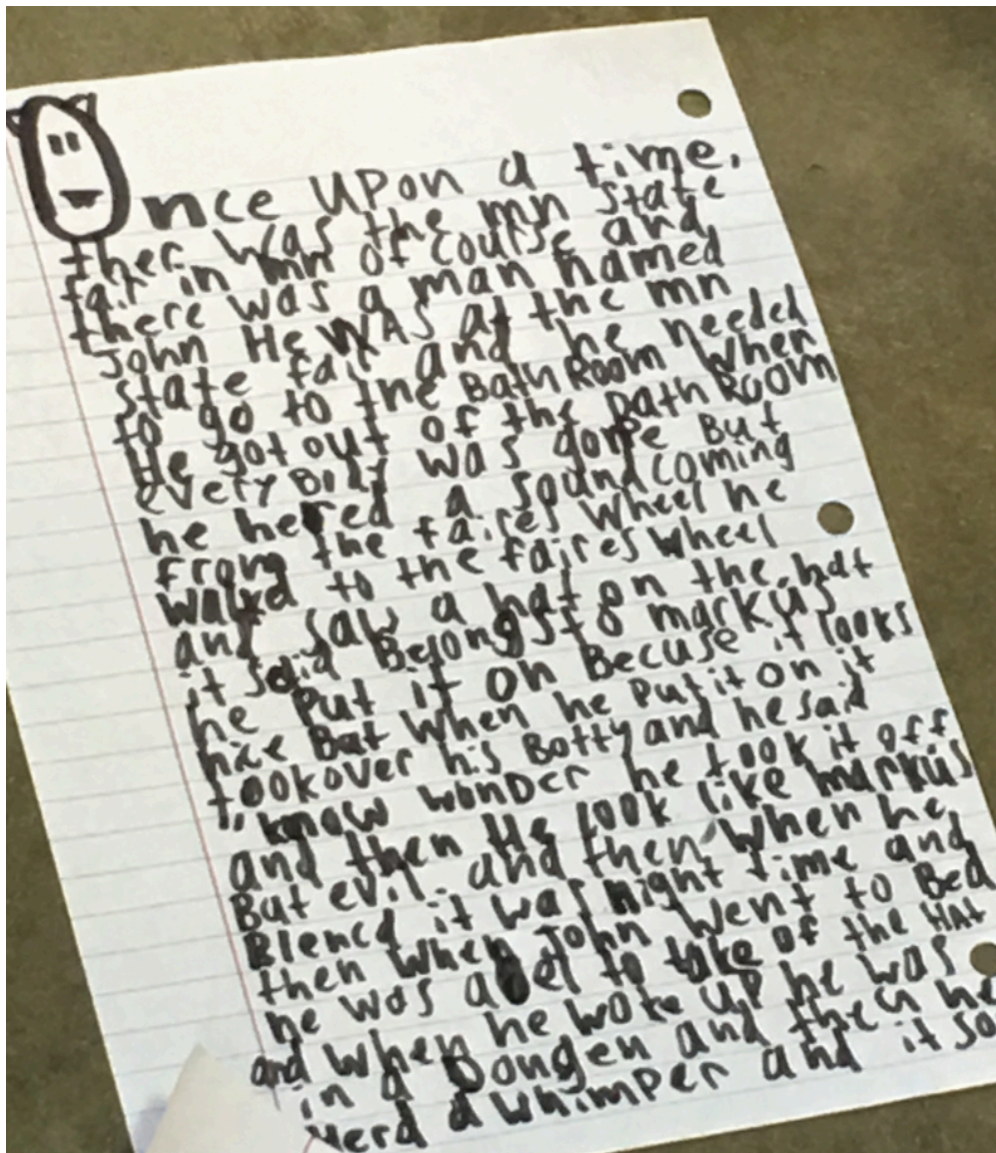 Once UPon a time,
ther was the mn state
fair in mn of course and
there was a man named
John He WAS at the mn
state fair and he needed
to go to the BathRoom When
He got out of the BathRoom
every Body was gone But
he hered a sound coming
from the faires wheel he
walkd to the faires wheel
and saw a hat on the hat
it said Belongs to markus
he Put it on Becuse it looks
nice But when he Put it on it
tookover his Botty and he said
"know wonder he took it off
and then He look like markus
But evil. and then when he
Blencd it was night time and
then when John went to Bed
he was abel to take of the HAt
and when he woke UP he was
in a Dongen and then he
Herd a whimper and it so